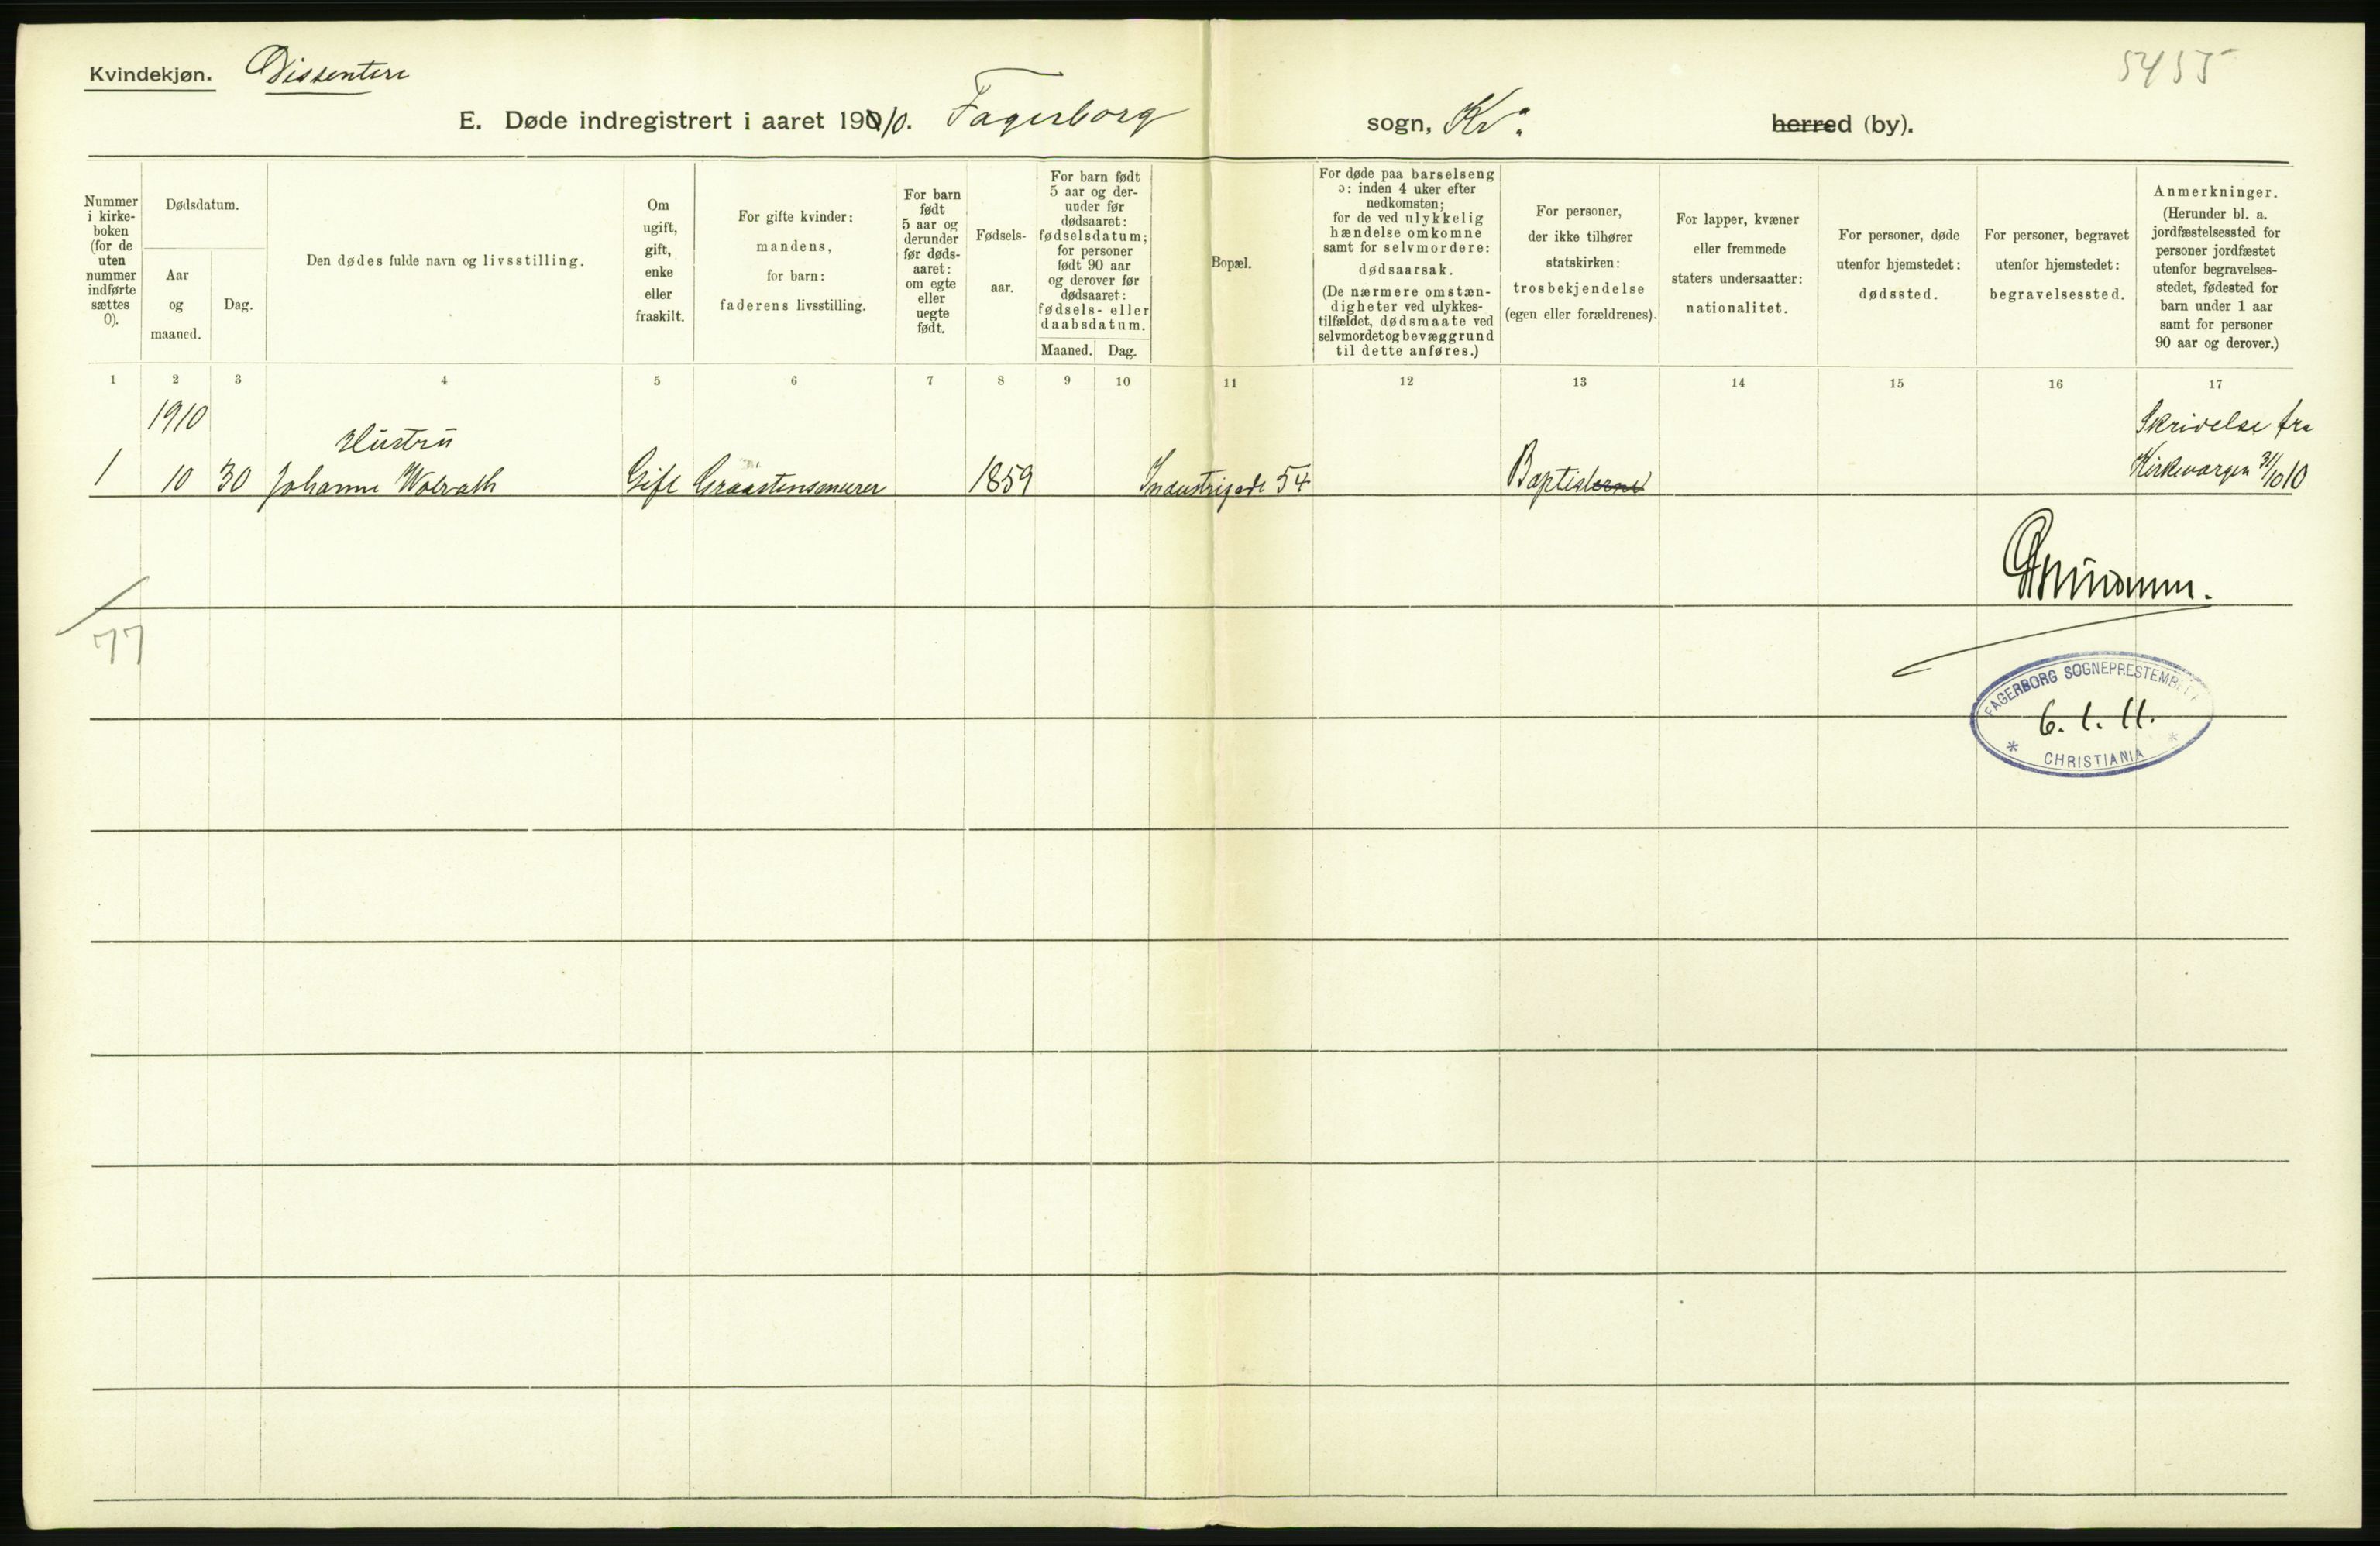 Kvindekjøn. Dissentere
5455
E. Døde indregistrert i aaret 1910. Fagerborg sogn, Kra herred (by).
Nummer
i kirke-
boken
(for de
uten
nummer
indførte
sættes
0).
Dødsdatum.
Aar
og
maaned.
Dag.
Den dødes fulde navn og livsstilling.
Om
ugift,
gift,
enke
eller
fraskilt.
For gifte kvinder:
mandens,
for barn:
faderens livsstilling.
For barn
født
5 aar og
derunder
før døds-
aaret:
om egte
eller
uegte
født.
Fødsels-
aar.
For barn født
5 aar og der-
under før
dødsaaret:
fødselsdatum;
for personer
født 90 aar
og derover før
dødsaaret:
fødsels- eller
daabsdatum.
Maaned. Dag.
Bopæl.
For døde paa barselseng
ɔ: inden 4 uker efter
nedkomsten;
for de ved ulykkelig
hændelse omkomne
samt for selvmordere:
dødsaarsak.
(De nærmere omstæn-
digheter ved ulykkes-
tilfældet, dødsmaate ved
selvmordet og bevæggrund
til dette anføres.)
For personer,
der ikke tilhører
statskirken:
trosbekjendelse
(egen eller forældrenes).
For lapper, kvæner
eller fremmede
staters undersaatter:
nationalitet.
For personer, døde
utenfor hjemstedet:
dødssted.
For personer, begravet
utenfor hjemstedet:
begravelsessted.
Anmerkninger.
(Herunder bl. a.
jordfæstelsessted for
personer jordfæstet
utenfor begravelses-
stedet, fødested for
barn under 1 aar
samt for personer
90 aar og derover.)
1 2 3 4 5 6 7 8 9 10 11 12 13 14 15 16 17
1910
Hustru
Skrivelse fra
1 10 30 Johanne Wolrath Gift Graastensmurer 1859 Industrigade 54 Baptisterne Kirkevergen 31/10 10
77
FAGERBORG SOGNEPRESTEMBEDE
6. 1. 11.
* CHRISTIANIA *